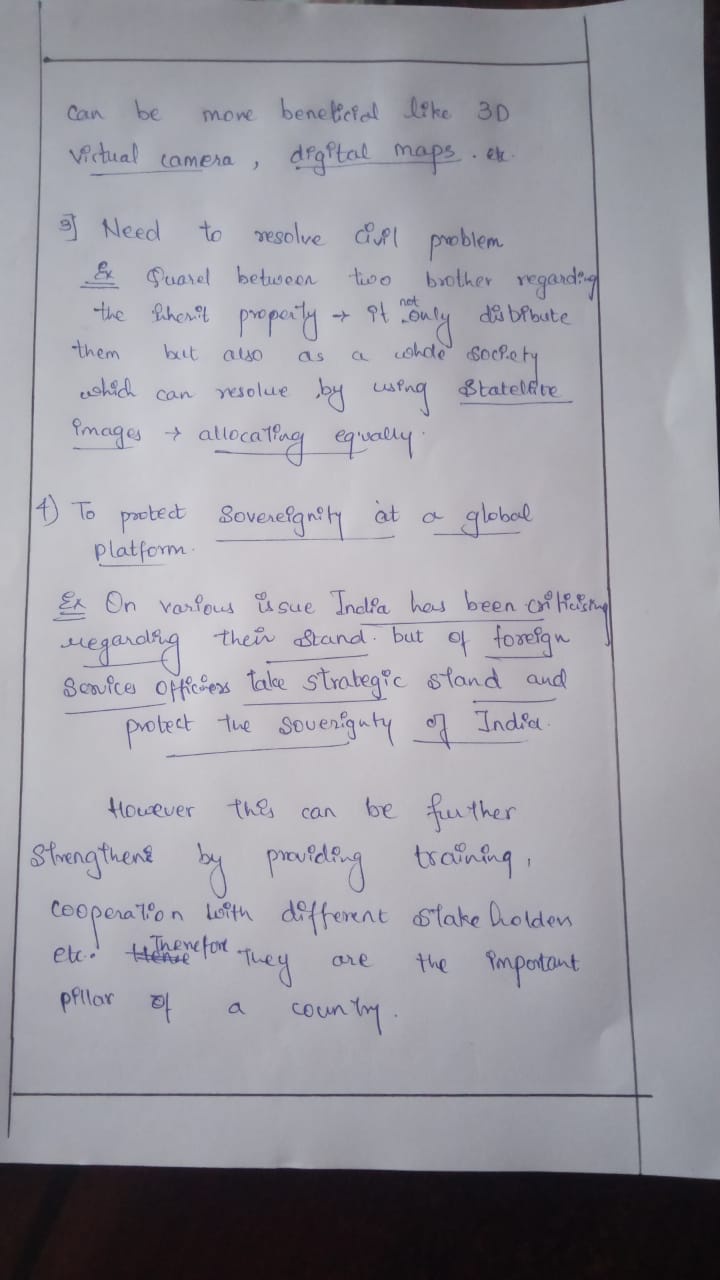 can be more beneficial like 3D
virtual camera, digital maps. etc.
3] Need to resolve civil problem
Ex Quarel between two brother regarding
the inherit property → it not only distribute
them but also as a whole society
which can resolve by using Statellite
images → allocating equally.
4) To protect Sovereignity at a global
platform.
Ex On various issue India has been criticising
regarding their stand. but of foreign
Services officers take strategic stand and
protect the soverignty of India.
However this can be further
Strengthens by providing training,
cooperation with different stake holder
etc. Therefore They are the important
pillar of a country.